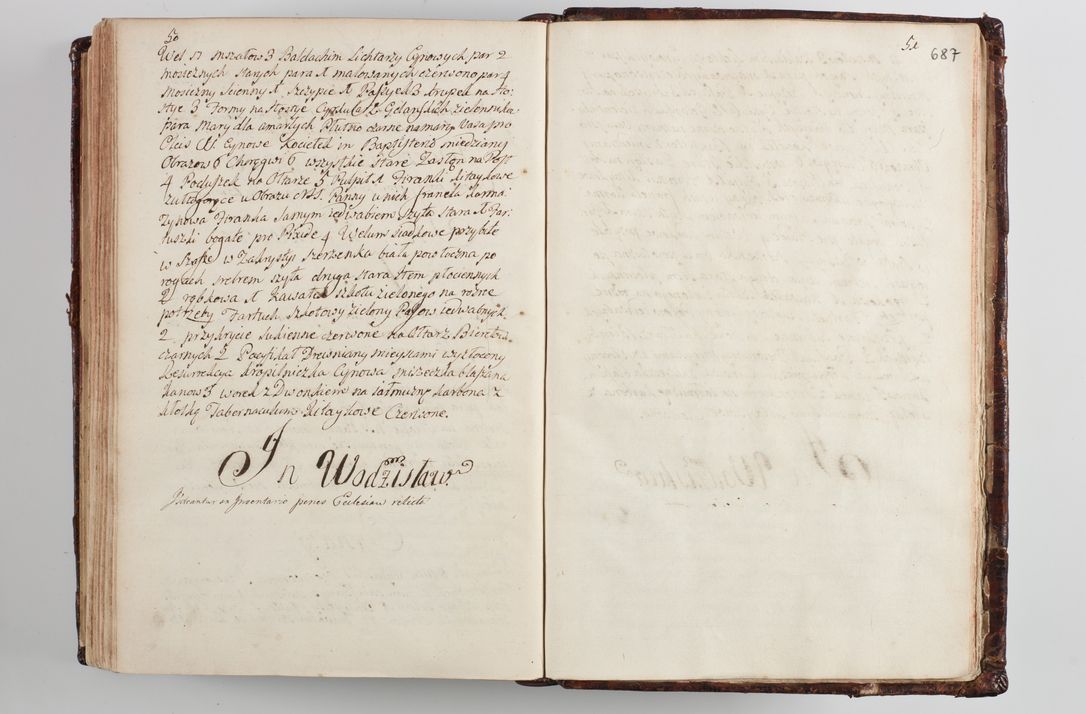 50
Wel 17 mszałow 3 Baldachim Lichtarzy Cynowych par 2
mosieznych starych para 1 malowanych czerwono par 4
Mosiezny scienny 1 szczypce 1 Passyek 3 krupek na Ho:
stye 3 Formy na Hostye Cyrkułas 2 Gdanskich zielonnika
para mary dla umarłych Płutno czarne na mary Vasa pro
Oleis Cynowe Kociełek in Baptisterio miedziany
Obrazow 6 Choręgwi 6 wszystkie stare Zasłon na Post
4 Poduszek na Ołtarze 5 Pulpit 1 Firanki kitaykowe
zułtogorące u Obrazu NSS. Panny u nich franela karma:
zynowa Firanka samym iedwabiem szyta stara 1 Far:
tuszki bogate pro Pixide 4 Welum siatkowe przybite
w Szafie w Zakrystyi Szerzenka biała powłoczna po
rogach srebrem szyta druga stara item płociennych
2 rąbkowa 1 Kawałek szkotu zielonego na rozne
potrzeby Fartuch szkotowy zielony Pasow iedwabnych
2 przykrycie sukienne czerwone na Ołtarz Biretow
czarnych 2 Pacyfikał Drewniany mieyscami wyzłocony
Resurrekcya Kropilniczka Cynowa miseczka blaszana
kanow 3 worek z Dwonkiem na iałmuzny karbona z
kłotką Tabernaculum kitaykowe Czerwone.
In Wodzisław
Videantur in Inventario penes Ecclesiam relicto
51
687